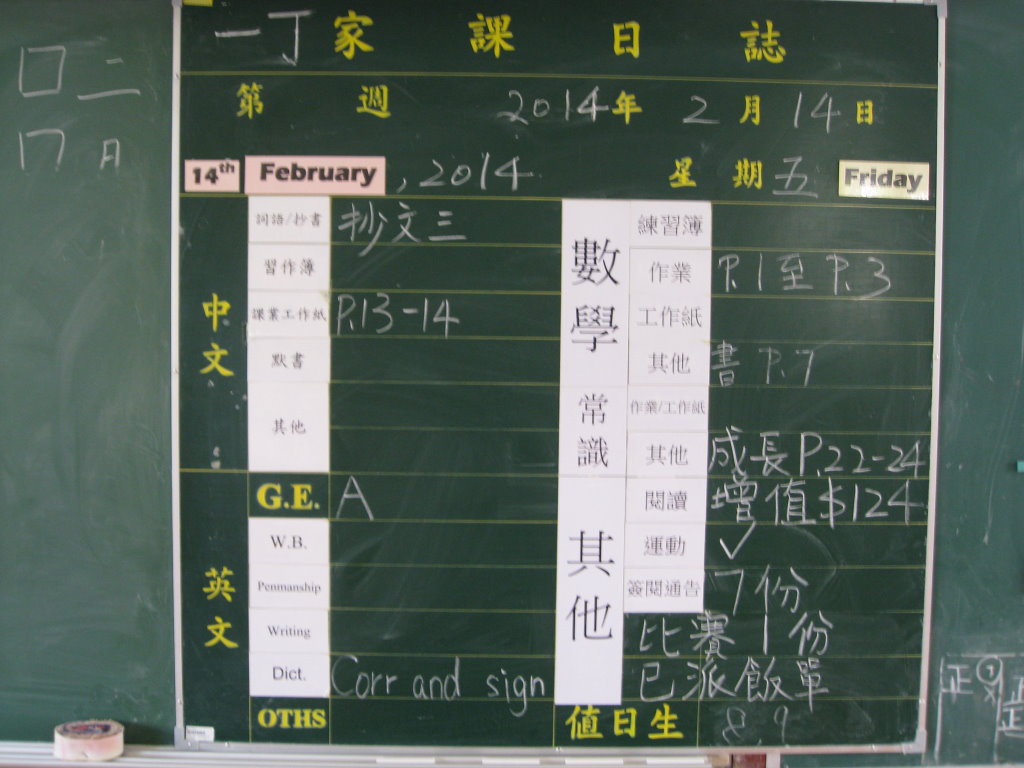 一丁家課日誌
第 週 2014年2月14日
14th February, 2014 星期五 Friday
中文
詞語/抄書 抄文三
習作簿
課業工作紙 P.13-14
默書
其他
英文
G.E. A
W.B.
Penmanship
Writing
Dict. Corr and sign
OTHS
數學
練習簿
作業 P.1至P.3
工作紙
其他 書 P.7
常識
作業/工作紙
其他 成長P.22-24
其他
閱讀 增值$124
運動 ✓
簽閱通告 7份
比賽1份
已派飯單
值日生 8.9
口二
月
正 1
正